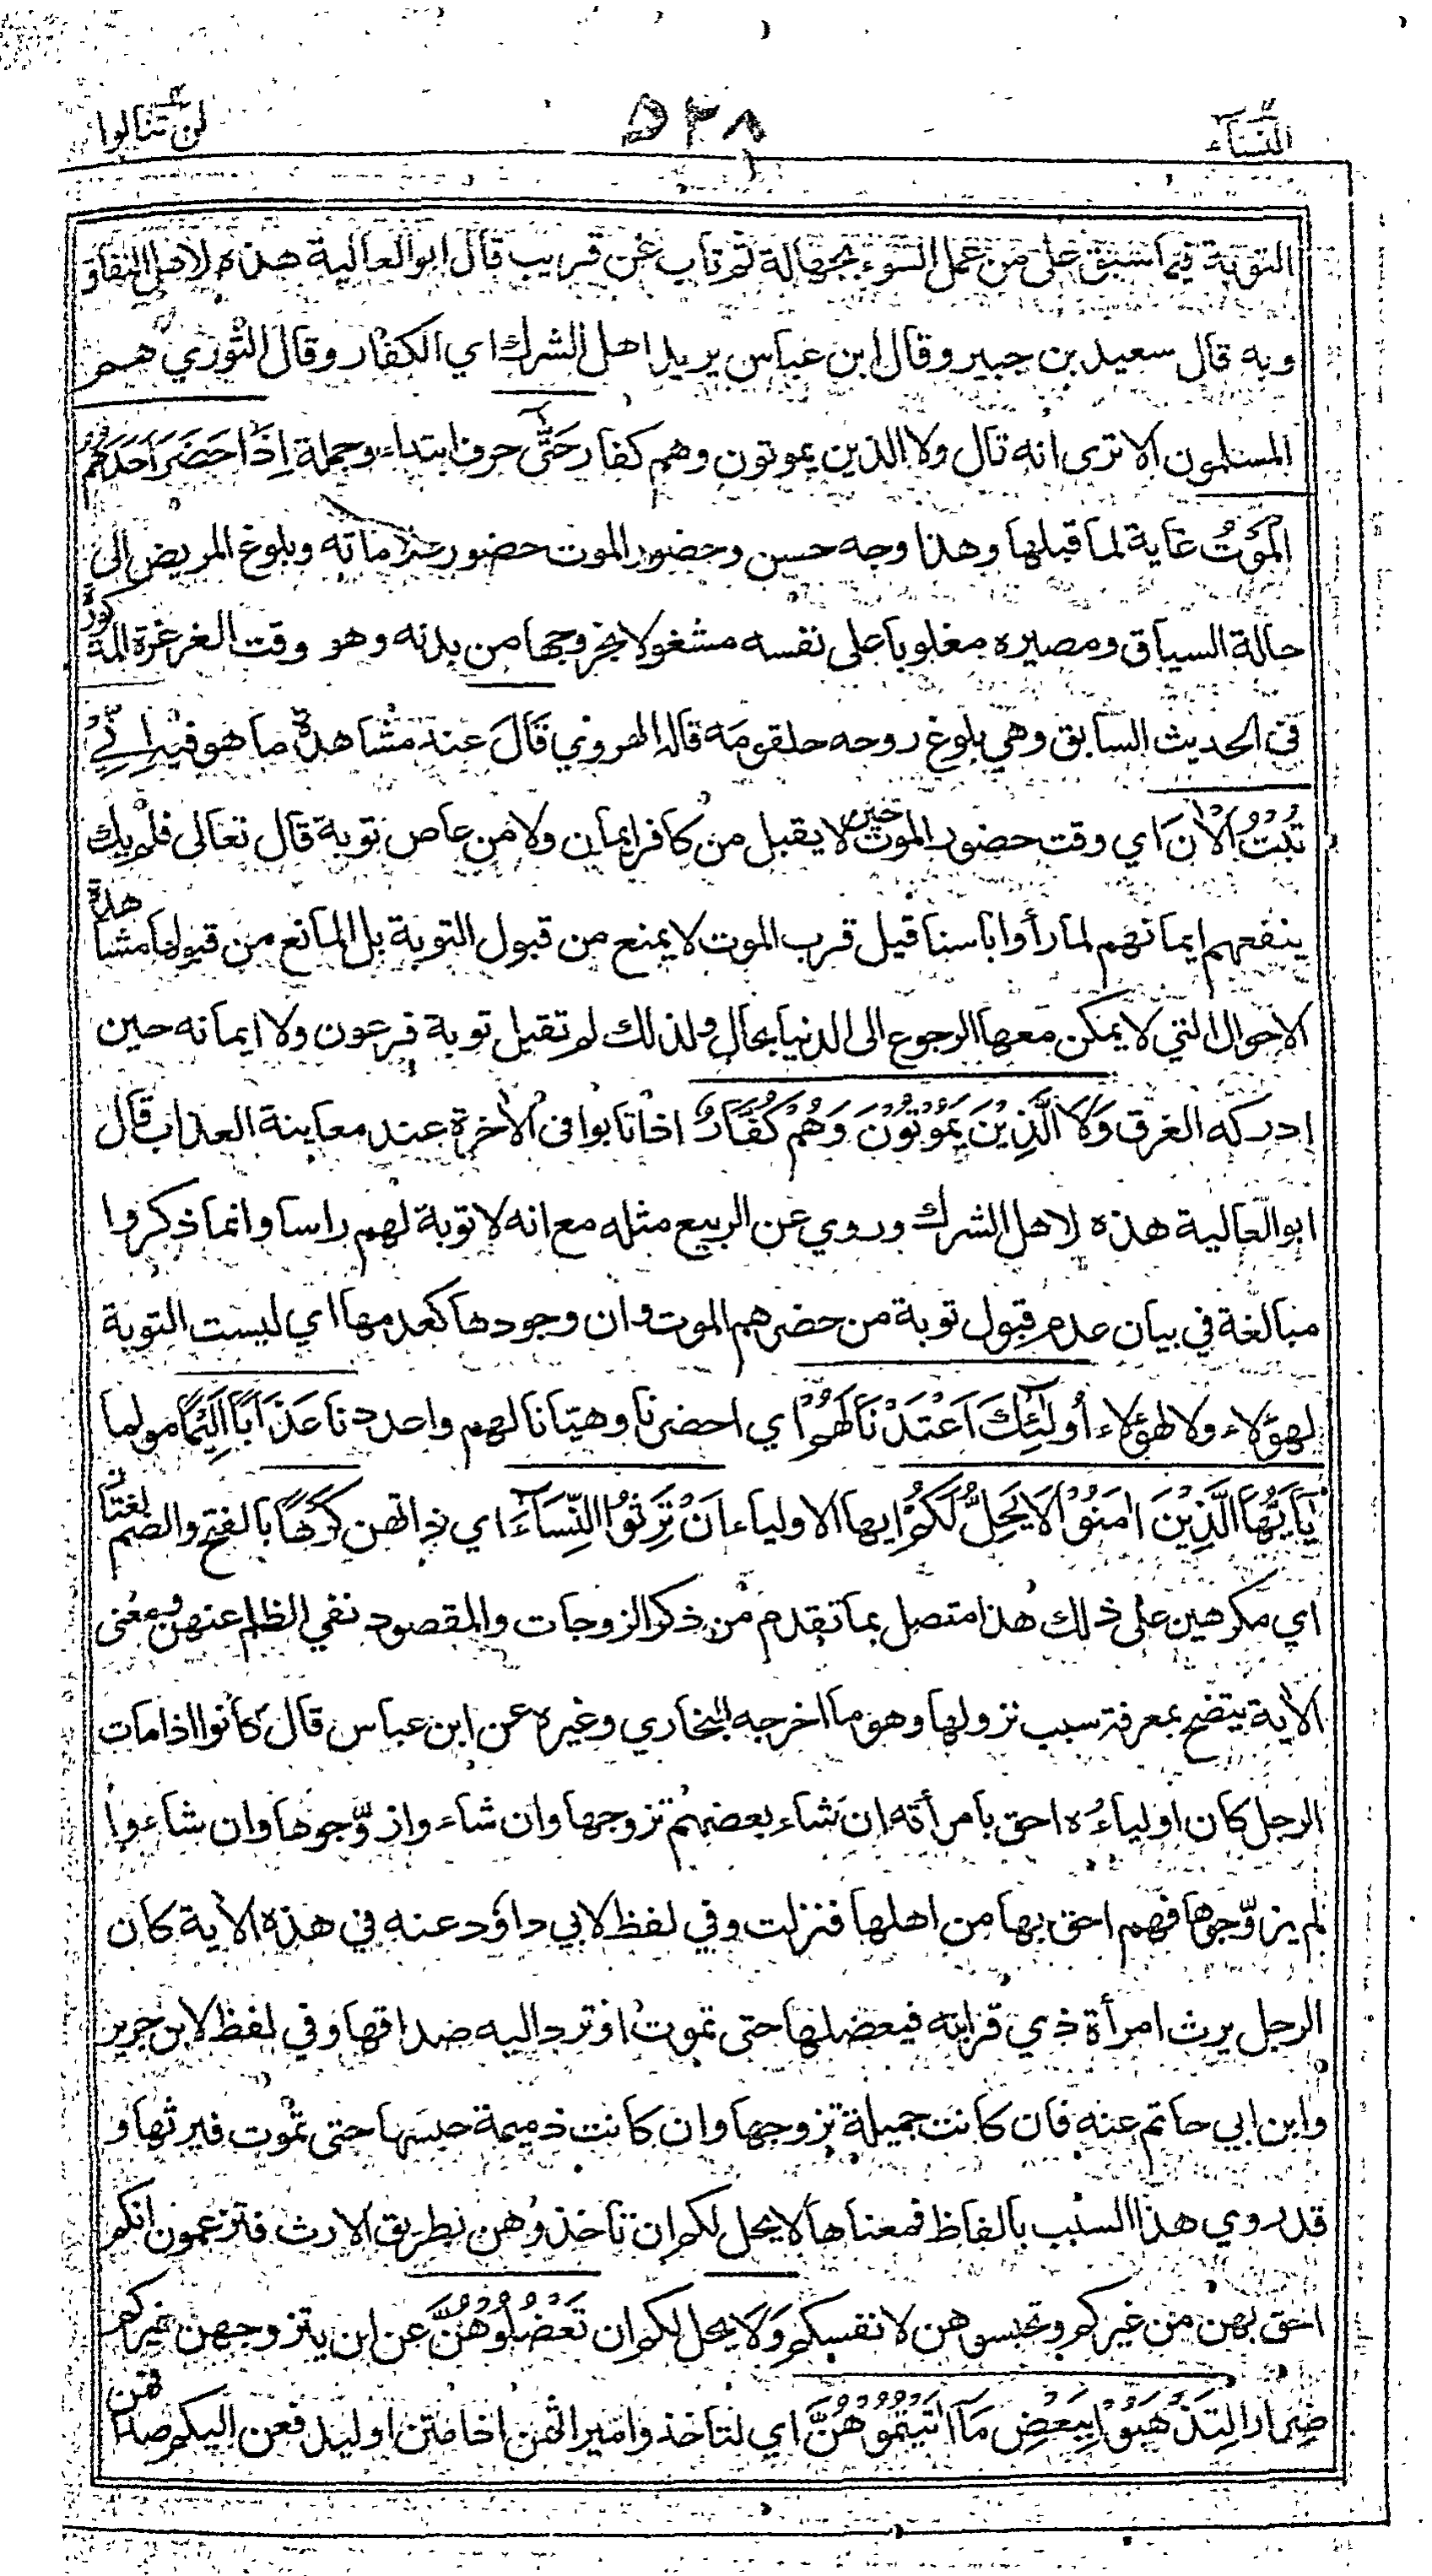 النساء
٥٣٨
لن تنالوا
التوبة فيما سبق على من عمل السوء بجهالة ثم تاب عن قريب قال ابو العالية هذه لاهل النفاق
وبه قال سعيد بن جبير وقال ابن عباس يريد اهل الشرك اي الكفار وقال الثوري هم
المسلمون الا ترى انه قال ولا الذين يموتون وهم كفار حَتَّى حرف ابتداء وجملة اِذَا حَضَرَ اَحَدَهُمُ
الْمَوْتُ غاية لما قبلها وهذا وجه حسن وحضور الموت حضور علاماته وبلوغ المريض الى
حالة السياق ومصيره مغلوبا على نفسه مشغولا بخروجها من بدنه وهو وقت الغرغرة المذكورة
في الحديث السابق وهي بلوغ روحه حلقومه قاله الهروي قَالَ عند مشاهدة ما هو فيه اِنِّيْ
تُبْتُ الْاٰنَ اي وقت حضور الموت حين لا يقبل من كافر ايمان ولا من عاص توبة قال تعالى فلم يك
ينفعهم ايمانهم لما رأوا باسنا قيل قرب الموت لا يمنع من قبول التوبة بل المانع من قبولها مشاهدة
الاحوال التي لا يمكن معها الرجوع الى الدنيا بحال ولذلك لم تقبل توبة فرعون ولا ايمانه حين
ادركه الغرق وَلَا الَّذِيْنَ يَمُوْتُوْنَ وَهُمْ كُفَّارٌ اذا تابوا في الاخرة عند معاينة العذاب قال
ابو العالية هذه لاهل الشرك وروي عن الربيع مثله مع انه لا توبة لهم راسا وانما ذكروا
مبالغة في بيان عدم قبول توبة من حضرهم الموت وان وجودها كعدمها اي ليست التوبة
لهؤلاء ولا لهؤلاء اُولٰئِكَ اَعْتَدْنَا لَهُمْ اي احضرنا وهيّأنا لهم واعددنا عَذَابًا اَلِيْمًا مولما
يَا اَيُّهَا الَّذِيْنَ اٰمَنُوْا لَا يَحِلُّ لَكُمْ ايها الاولياء اَنْ تَرِثُوا النِّسَاءَ اي ذاتهن كَرْهًا بالفتح والضم لغتان
اي مكرهين على ذلك هذا متصل بما تقدم من ذكر الزوجات والمقصود نفي الظلم عنهن ومعنى
الاية يتضح بمعرفة سبب نزولها وهو ما اخرجه البخاري وغيره عن ابن عباس قال كانوا اذا مات
الرجل كان اولياءُه احق بامرأته ان شاء بعضهم تزوجها وان شاءوا زوّجوها وان شاءوا
لم يزوّجوها فهم احق بها من اهلها فنزلت وفي لفظ لابي داؤد عنه في هذه الاية كان
الرجل يرث امرأة ذي قرابته فيعضلها حتى تموت او ترد اليه صداقها وفي لفظ لابن جرير
وابن ابي حاتم عنه فان كانت جميلة تزوجها وان كانت ذميمة حبسها حتى تموت فيرثها و
قد روي هذا السبب بالفاظ فمعناها لا يحل لكم ان تاخذوهن بطريق الارث فتزعمون انكم
احق بهن من غيركم وتحبسوهن لانفسكم وَلَا يحل لكم ان تَعْضُلُوْهُنَّ عن ان يتزوجهن غيركم
ضرارا لِتَذْهَبُوْا بِبَعْضِ مَا اٰتَيْتُمُوْهُنَّ اي لتاخذوا ميراثهن اذا متن او ليدفعن اليكم صداقهن